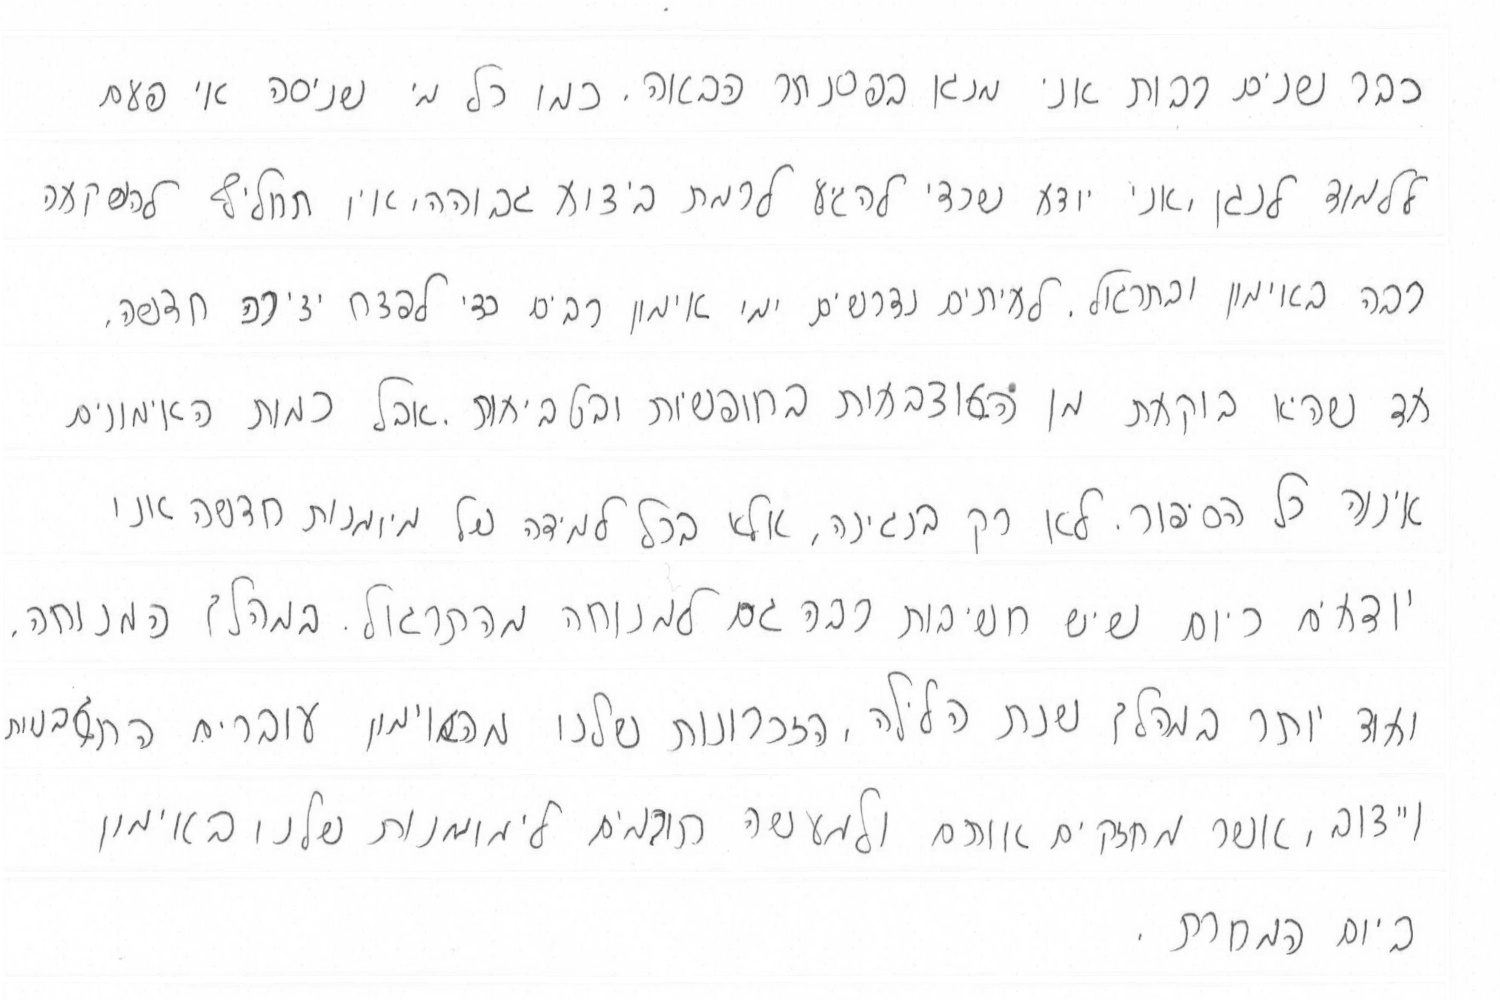 כבר שנים רבות אני מנגן בפסנתר הבאה. כמו כל מי שניסה אי פעם
ללמוד לנגן, אני יודע שכדי להגיע לרמת ביצוע גבוהה, אין תחליף להשקעה
רבה באימון ובתרגול. לעיתים נדרשים ימי אימון רבים כדי לפצח יצירה חדשה,
עד שהיא בוקעת מן האצבעות בחופשיות ובטביעות. אבל כמות האימונים
איננה כל הסיפור. לא רק בנגינה, אלא בכל למידה של מיומנות חדשה אנו
יודעים כיום שיש חשיבות רבה גם למנוחה מהתרגול. במהלך המנוחה,
ועוד יותר במהלך שנת הלילה, הזכרונות שלנו מהאימון עוברים התגבשות
וייצוב, אשר מחזקים אותם ולמעשה תורמים למיומנות שלנו באימון
ביום המחרת.